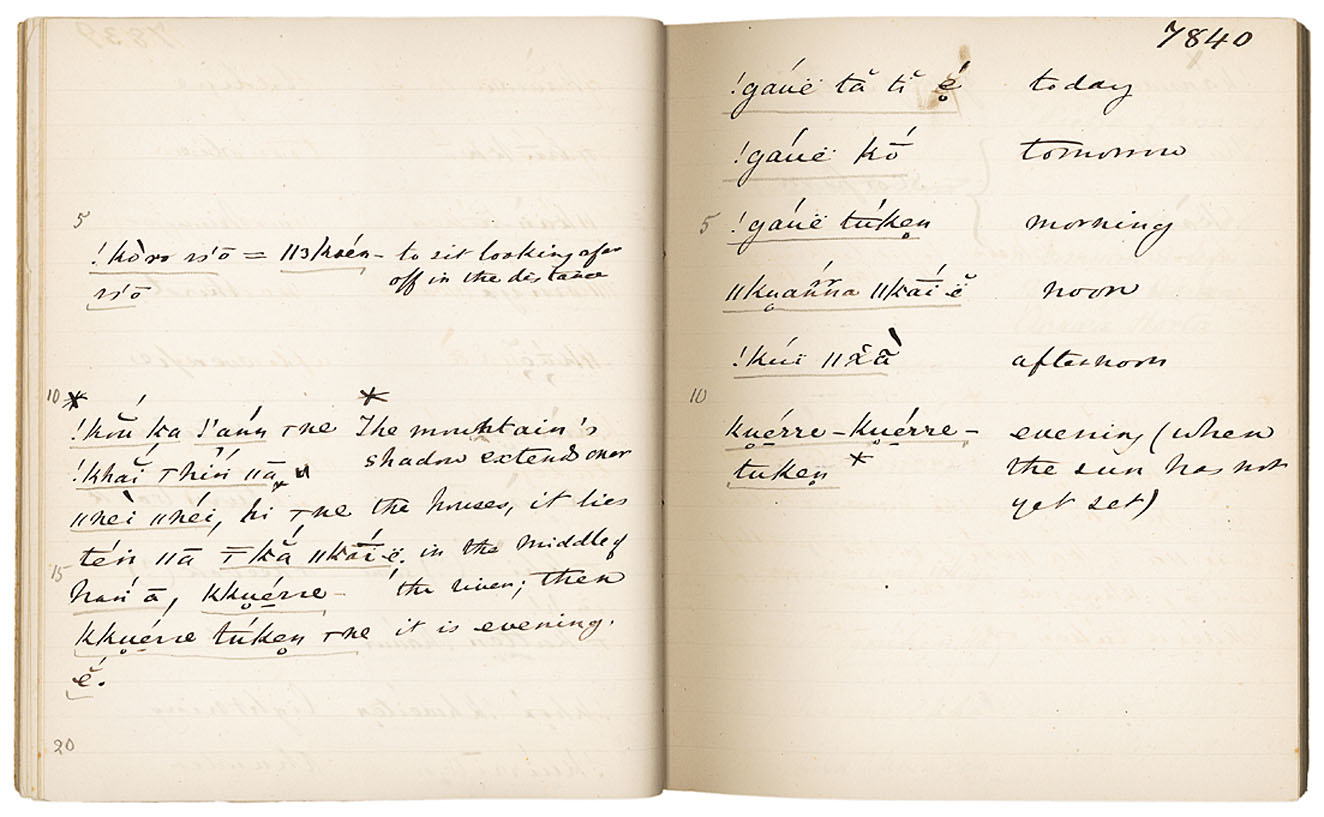 5
!kòro ss'ō = ||3/koén - to sit looking afar
ss'ō off in the distance
10
* *
!kŏú ka !'aúṇ ꞇne The mountain's
!khaĭ ꞇhíń ||ā shadow extends over
||néi ||néi, hi ꞇne the houses, it lies
téń ||ā ꞇkắ ||káí-ẹ̆. in the middle of
15
hań ā, kkụérre - the river; then
kkụérre túkeṇ ꞇne it is evening.
ĕ́.
20
7840
!gáuë tă tĭ ẹ́ today
!gáuë kō̆ tomorrow
5
!gáuë túkeṇ morning
||kụańna ||káí ĕ noon
!kúï ||x̂ā̀ afternoon
10
kụérre - kụérre - evening (when
tukeṇ * the sun has not
yet set)